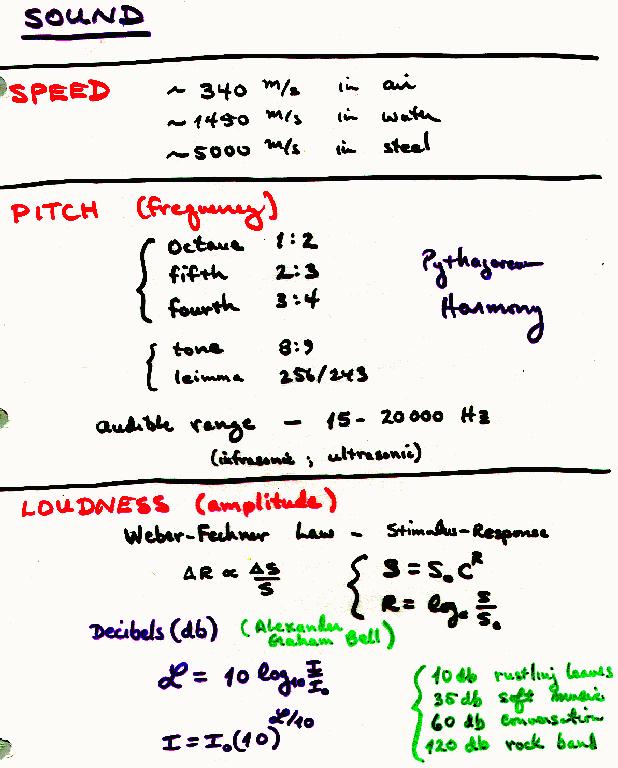 SOUND
SPEED ~ 340 m/s in air
~ 1490 m/s in water
~ 5000 m/s in steel
PITCH (frequency)
octave 1:2
fifth 2:3
fourth 3:4
Pythagorean
Harmony
tone 8:9
leimma 256/243
audible range — 15 - 20000 Hz
(infrasonic ; ultrasonic)
LOUDNESS (amplitude)
Weber-Fechner Law - Stimulus-Response
ΔR ∝ ΔS/S
S = S₀ C^R
R = log_c S/S₀
Decibels (db) (Alexander
Graham Bell)
ℒ = 10 log₁₀ I/I₀
I = I₀(10)^ℒ/10
10 db rustling leaves
35 db soft music
60 db conversation
120 db rock band